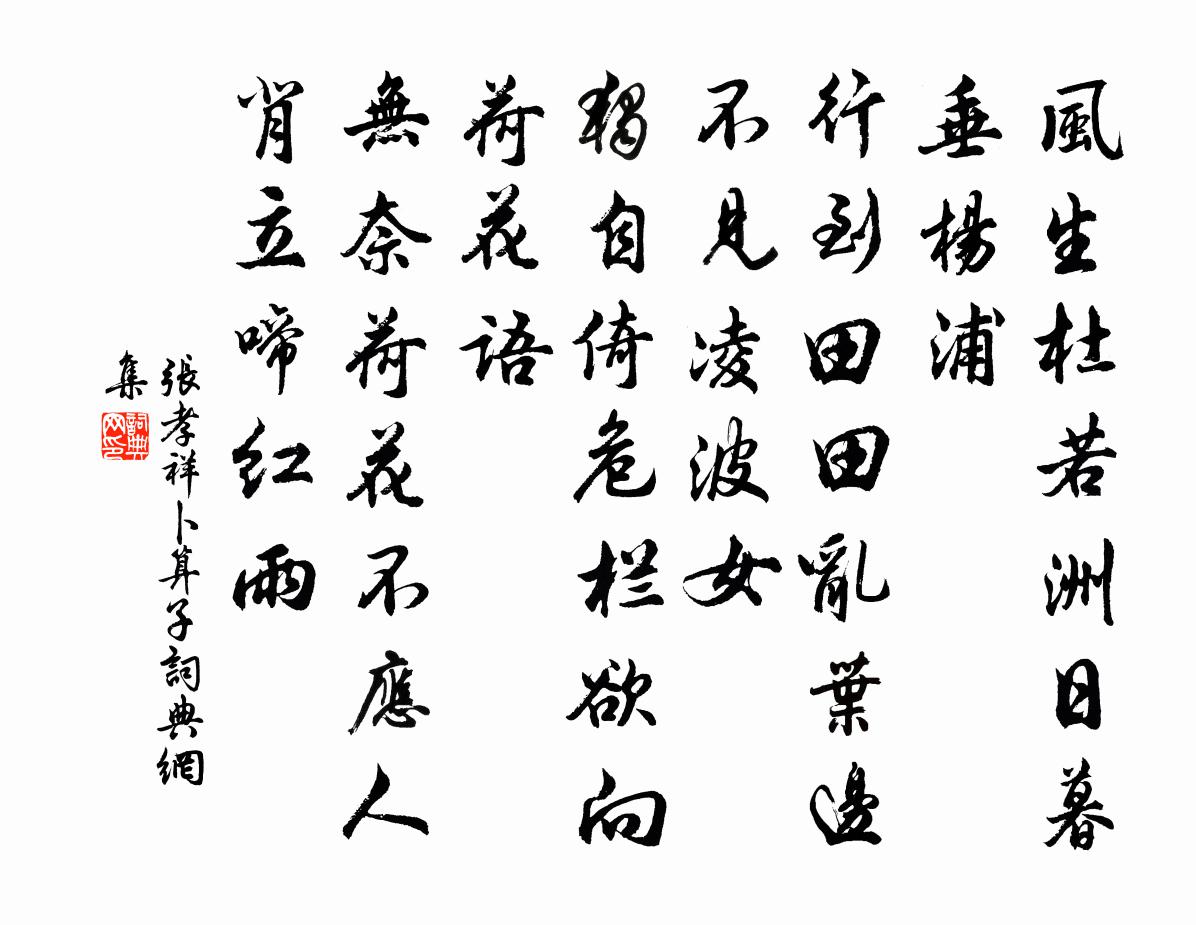 風生杜若洲日暮
垂楊浦
行到田田亂葉邊
不見凌波女
獨自倚危栏欲向
荷花語
無奈荷花不應人
背立啼红雨
張孝祥卜算子詞典網
集
詞典
网印